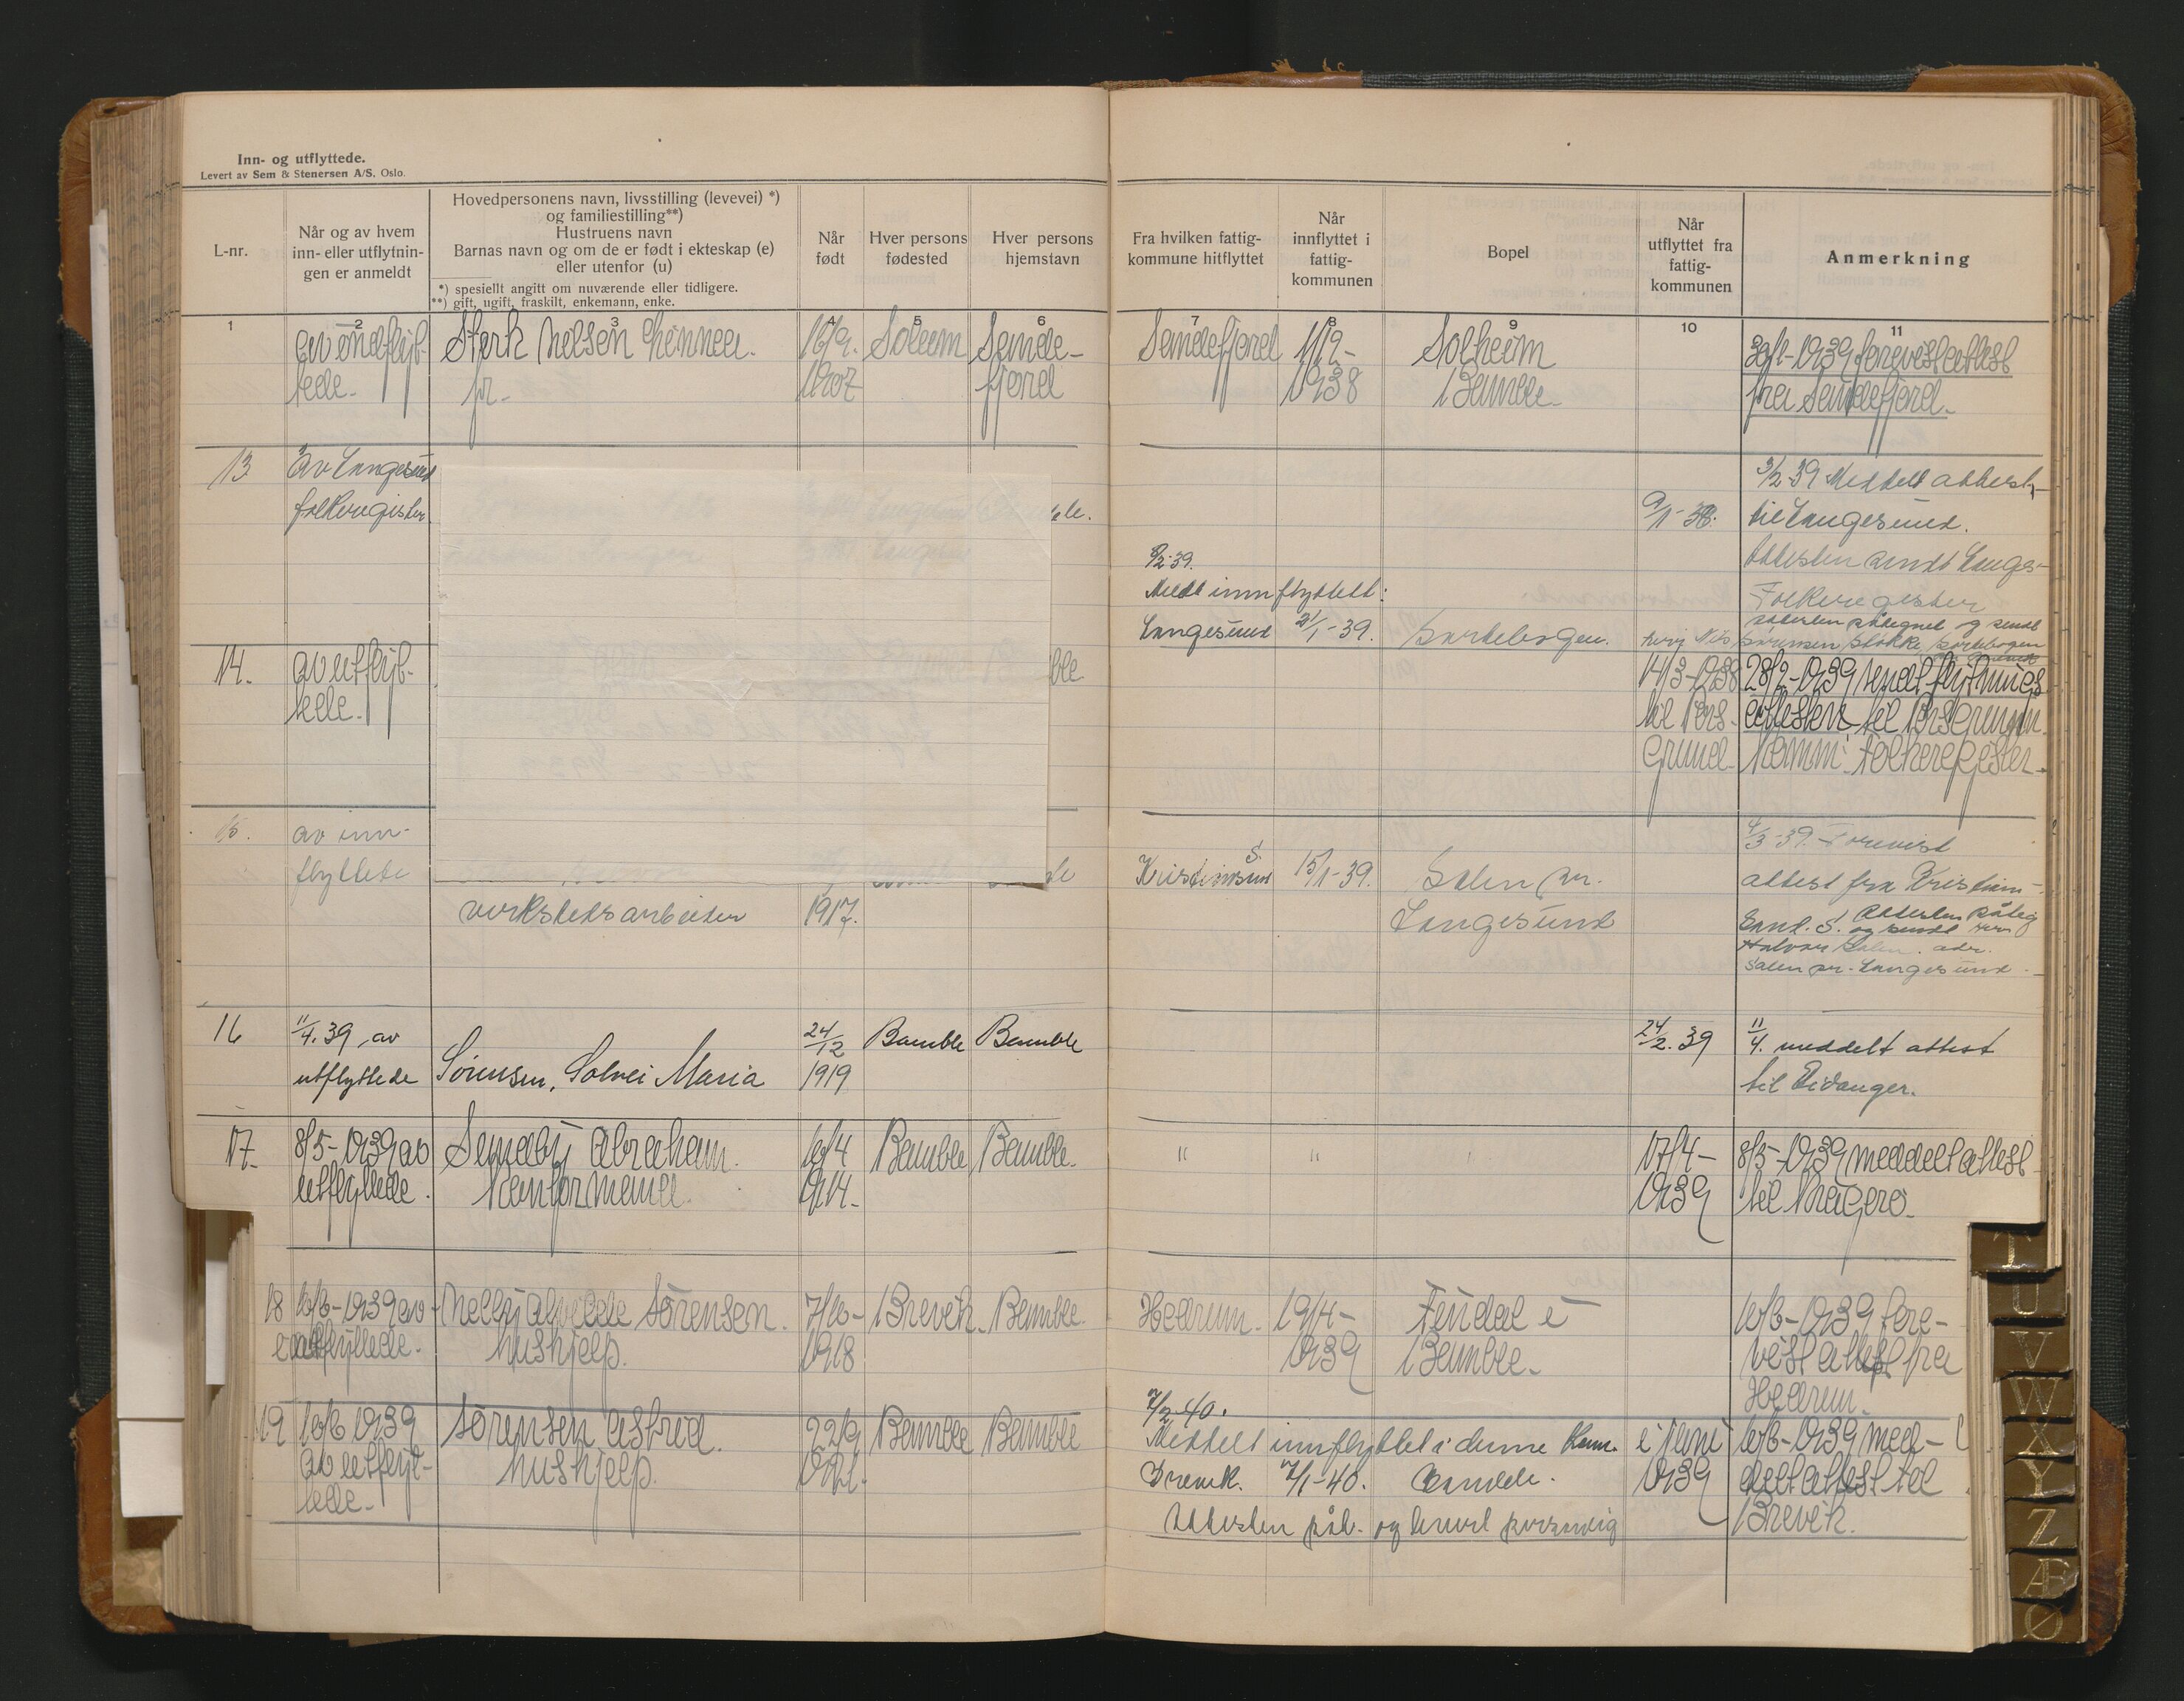 Inn- og utflyttede.
Levert av Sem & Stenersen A/S, Oslo.
L-nr.
Når og av hvem
inn- eller utflytnin-
gen er anmeldt
Hovedpersonens navn, livsstilling (levevei) *)
og familiestilling**)
Hustruens navn
Barnas navn og om de er født i ekteskap (e)
eller utenfor (u)
*) spesielt angitt om nuværende eller tidligere.
**) gift, ugift, fraskilt, enkemann, enke.
Når
født
Hver persons
fødested
Hver persons
hjemstavn
Fra hvilken fattig-
kommune hitflyttet
Når
innflyttet i
fattig-
kommunen
Bopel
Når
utflyttet fra
fattig-
kommunen
Anmerkning
1 2 3 4 5 6 7 8 9 10 11
Sterk Nilsen Linnea. 16/9. Solum Sande- Sandefjord 11/9- Solheim 30/1-1939 forevist attest
tede. fr. 1907 fjord 1938 Bamble. fra Sandefjord.
13 av Langesund 3/2 39 Meddelt attest
folkeregister 9/1-38. til Langesund.
8/2-39. Attesten sendt Langes-
Meldt innflyttet: Folkeregister
Langesund 21/1-39. attesten påtegnet og sendt
14. av utflyt- 14/3-1938 28/2-1939 sendt flytnings
tede. til Pors- attesten til Porsgrunn
grund Komm. folkeregister.
av inn- 4/3-39. Forevist
flyttede Kristiansund S. 15/1-39. Salen pr. attest fra Kristian-
verkstedsarbeider 1917. Langesund Sand. S. Attesten påteg
og sendt
Halvor Salen. adr.
Salen pr. Langesund.
16 11/4.39, av 24/12 Bamble Bamble 24/2.39 11/4. meddelt attest
utflyttede Sørensen, Solvei Maria 1919 til Eidanger.
17. 8/5-1939 av Sundby Abraham. 16/4 Bamble Bamble. " " " 17/4- 8/5-1939 meddelt attest
utflyttede. Kontormand. 1914. 1939 til Kragerø.
18 10/6-1939 av Nelly Alvilde Sørensen. 7/10- Brevik. Bamble. Hedrum. 19/4- Findal i 10/6-1939 fore-
hushjelp. 1918 1939 Bamble. vist attest fra
Hedrum.
19 10/6 1939 Sørensen Astrid. 22/9 Bamble Bamble 7/2.40. i juni 10/6-1939 med-
av utflyt- hushjelp. Meddelt innflyttet i denne Kom. 1939 delt attest til
tede. Brevik. 7/1-40. Bamble. Brevik.
Attesten påt. og levert personlig
T
U
V
W
X
Y
Z
Æ
Ø